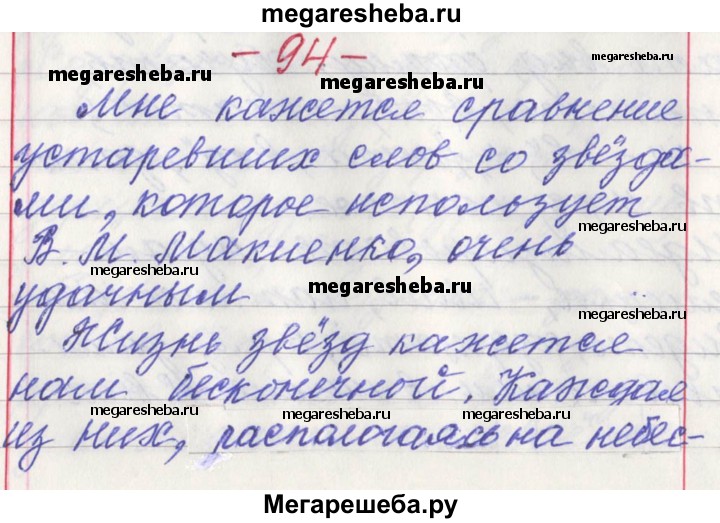 megaresheba.ru
- 94 -
megaresheba.ru
megaresheba.ru
megaresheba.ru
Мне кажется сравнение
устаревших слов со звёзда-
ми, которое использует
В. М. Макиенко, очень
megaresheba.ru
megaresheba.ru
megaresheba.ru
удачным
Жизнь звёзд кажется
нам бесконечной. Каждая
megaresheba.ru
megaresheba.ru
megaresheba.ru
из них, распологаясь на небес-
Мегарешеба.ру